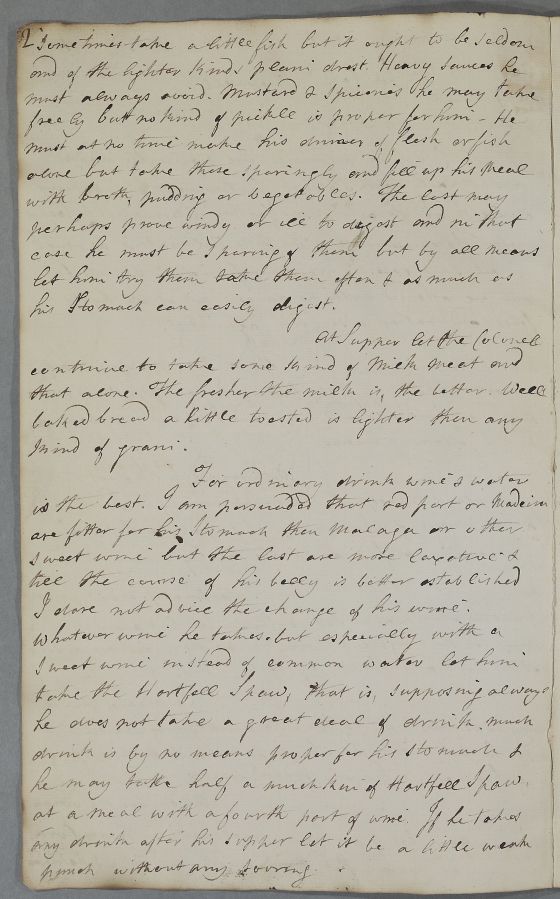 2
Sometimes take a little fish but it ought to be seldom
and of the lighter kinds plain drest. Heavy sauces he
must always avoid. Mustard & spiceries he may take
freely but no kind of pickle is proper for him - He
must at no time make his dinner of flesh or fish
alone but take these sparingly and fill up his meal
with broth, pudding or vegetables. The last may
perhaps prove windy or ill to digest and in that
case he must be sparing of them but by all means
let him try them take them often & as much as
his stomach can easily digest.
At Supper let the Colonell
continue to take some kind of Milk meat and
that alone. The fresher the milk is, the better. Well
baked bread a little toasted is lighter then any
kind of grain.
For ordinary drink wine & water
is the best. I am persuaded that red port or Madeira
are fitter for his stomach than Malaga or other
sweet wine but the last are more laxative &
till the course of his belly is better established
I dare not advice the change of his wine.
Whatever wine he takes, but especially with a
sweet wine instead of common water let him
take the Hartfell Spaw, that is, supposing always
he does not take a great deal of drink, much
drink is by no means proper for his stomach &
he may take half a mutchkin of Hartfell Spaw
at a meal with a fourth part of wine. If he takes
any drink after his supper let it be a little weak
punch without any souring.